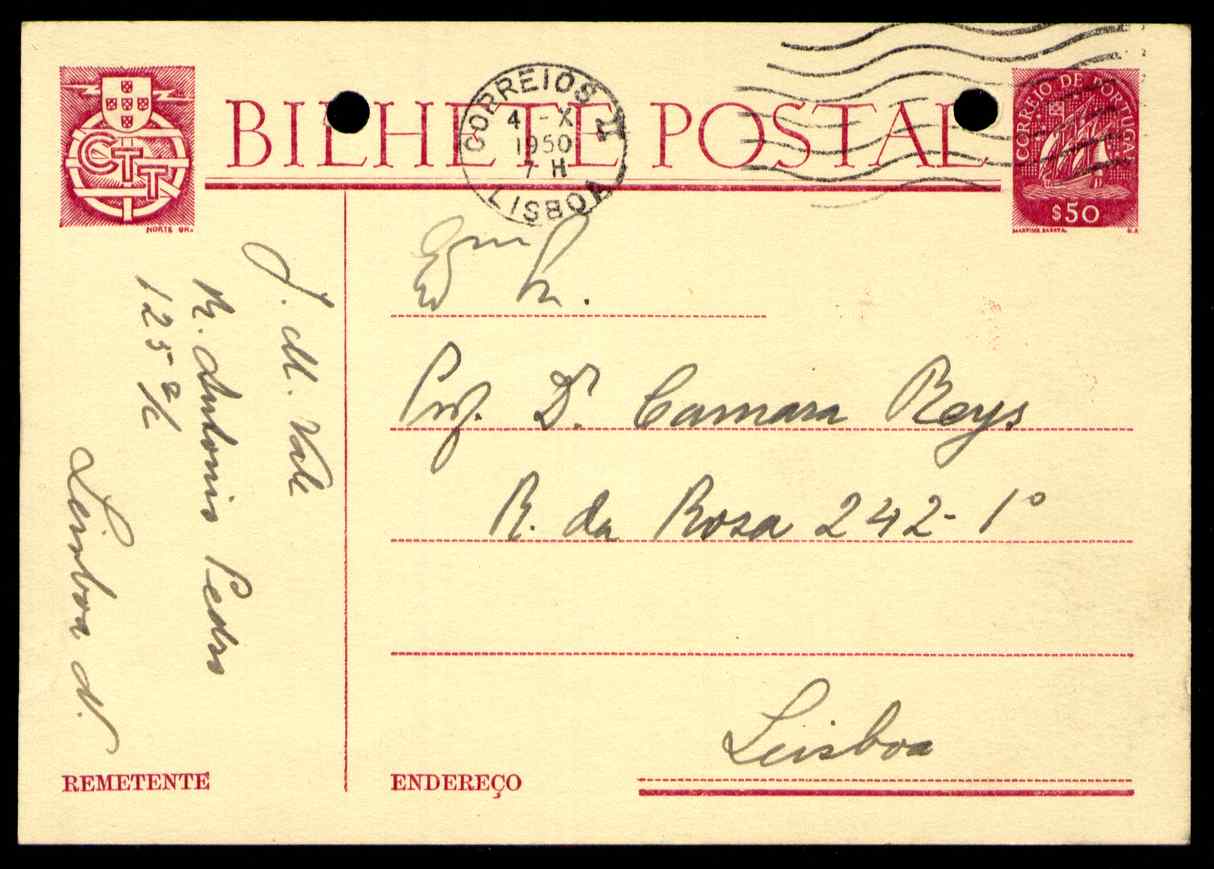 BILHETE POSTAL
CTT
NORTE GR.
CORREIOS 2
4 - X
1950
7 H
LISBOA
CORREIO DE PORTUGAL
$50
MARTINS BARATA
Exmo Sr.
Prof. Dr. Camara Reys
R. da Rosa 242-1º
Lisboa
ENDEREÇO
J. M. Vale
R. Antonio Pedro
125 r/c
Lisboa N.
REMETENTE